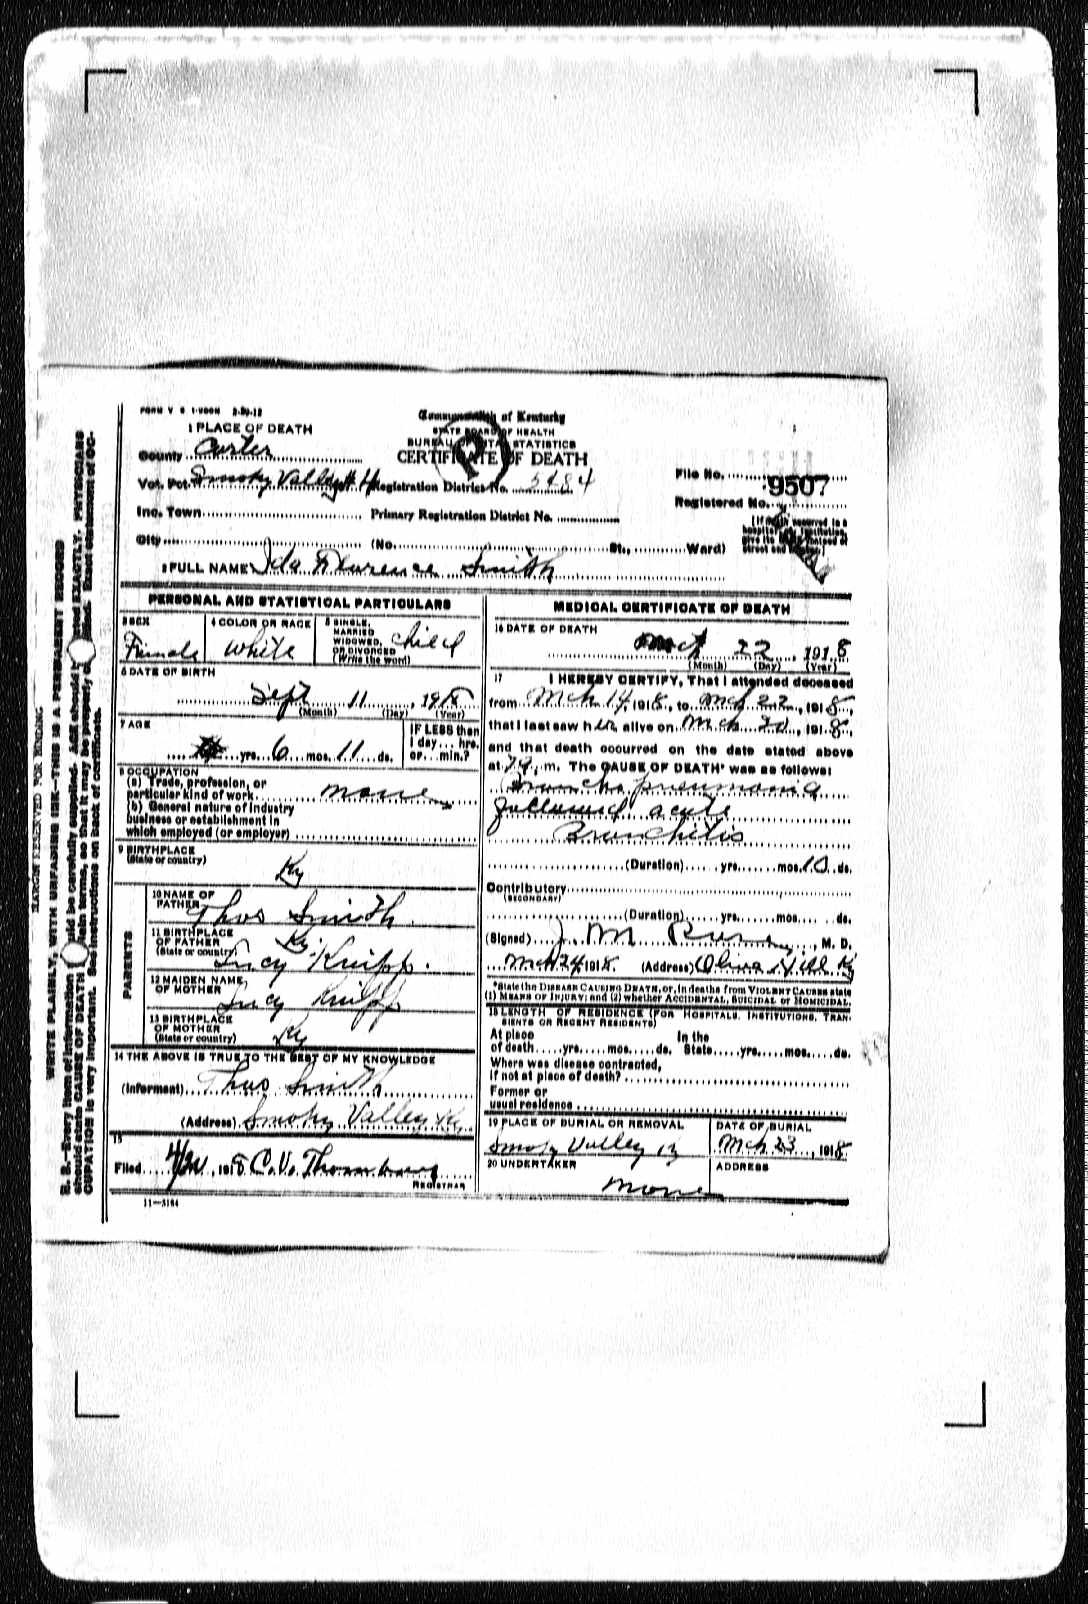 FORM V S 1-
Commonwealth of Kentucky
STATE BOARD OF HEALTH
BUREAU OF VITAL STATISTICS
CERTIFICATE OF DEATH
1 PLACE OF DEATH
County Carter
Vot. Pct. Smoky Valley # 4 Registration District No. 5484
File No. 9507
Registered No.
Inc. Town Primary Registration District No.
City (No. St., Ward)
[If death occurred in a hospital or institution, give its NAME instead of street and number.]
2 FULL NAME Ida Florence Smith
PERSONAL AND STATISTICAL PARTICULARS
3 SEX
Female
4 COLOR OR RACE
White
5 SINGLE, MARRIED WIDOWED, OR DIVORCED (Write the word)
child
6 DATE OF BIRTH
Sept 11, 19
(Month) (Day) (Year)
7 AGE
yrs. 6 mos. 11 ds.
IF LESS than 1 day... hrs. or... min.?
8 OCCUPATION
(a) Trade, profession, or
particular kind of work none
(b) General nature of industry
business or establishment in
which employed (or employer)
9 BIRTHPLACE
(State or country)
Ky
PARENTS
10 NAME OF FATHER
Thos Smith
11 BIRTHPLACE OF FATHER
(State or country)
Ky
Lucy Knipp.
12 MAIDEN NAME OF MOTHER
Lucy Knipp
13 BIRTHPLACE OF MOTHER
(State or country)
Ky
14 THE ABOVE IS TRUE TO THE BEST OF MY KNOWLEDGE
(Informant) Thos Smith
(Address) Smoky Valley Ky.
15
Filed 191 C.V. Thornbury
REGISTRAR
11—3184
MEDICAL CERTIFICATE OF DEATH
16 DATE OF DEATH
Mch 22, 1918
(Month) (Day) (Year)
17 I HEREBY CERTIFY, That I attended deceased
from Mch 14, 1918, to Mch 22, 1918,
that I last saw her alive on Mch 20, 1918,
and that death occurred on the date stated above
at m. The CAUSE OF DEATH* was as follows:
Broncho pneumonia
followed acute
Bronchitis
(Duration) yrs. mos. 10 ds.
Contributory
(SECONDARY)
(Duration) yrs. mos. ds.
(Signed) J. M. , M. D.
Mch 24, 1918. (Address) Olive Hill Ky
*State the DISEASE CAUSING DEATH, or, in deaths from VIOLENT CAUSES state
(1) MEANS OF INJURY; and (2) whether ACCIDENTAL, SUICIDAL or HOMICIDAL.
18 LENGTH OF RESIDENCE (FOR HOSPITALS, INSTITUTIONS, TRANSIENTS OR RECENT RESIDENTS)
At place In the
of death yrs. mos. ds. State yrs. mos. ds.
Where was disease contracted,
if not at place of death?
Former or
usual residence
19 PLACE OF BURIAL OR REMOVAL
Smoky Valley Ky
DATE OF BURIAL
Mch 23, 1918
20 UNDERTAKER
none
ADDRESS
MARGIN RESERVED FOR BINDING
WRITE PLAINLY, WITH UNFADING INK—THIS IS A PERMANENT RECORD
N. B.—Every item of information should be carefully supplied. AGE should be stated EXACTLY. PHYSICIANS
should state CAUSE OF DEATH in plain terms, so that it may be properly classified. Exact statement of OC-
CUPATION is very important. See instructions on back of certificate.